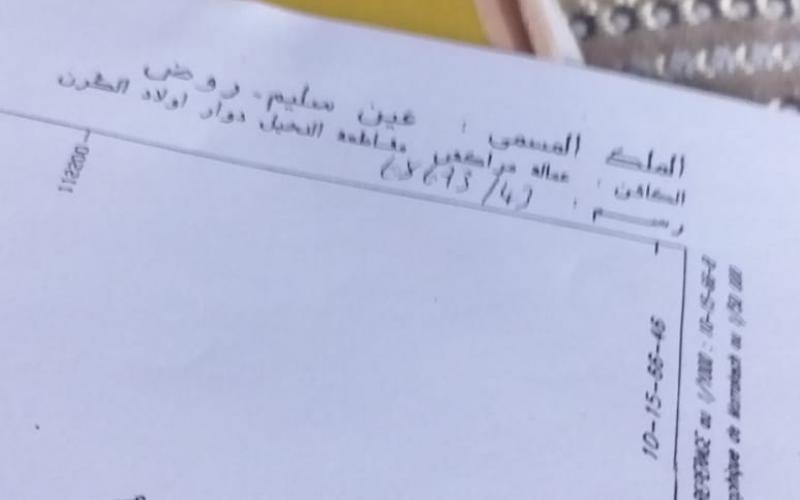 الملك المسمى : عين سليم - روض
الكائن : عمالة مراكش مقاطعة النخيل دوار اولاد الكرن
رسم :
112200
10-15-66-46
au 1/1000 : 10-15-66-B
de Marrakech au 1/50 000